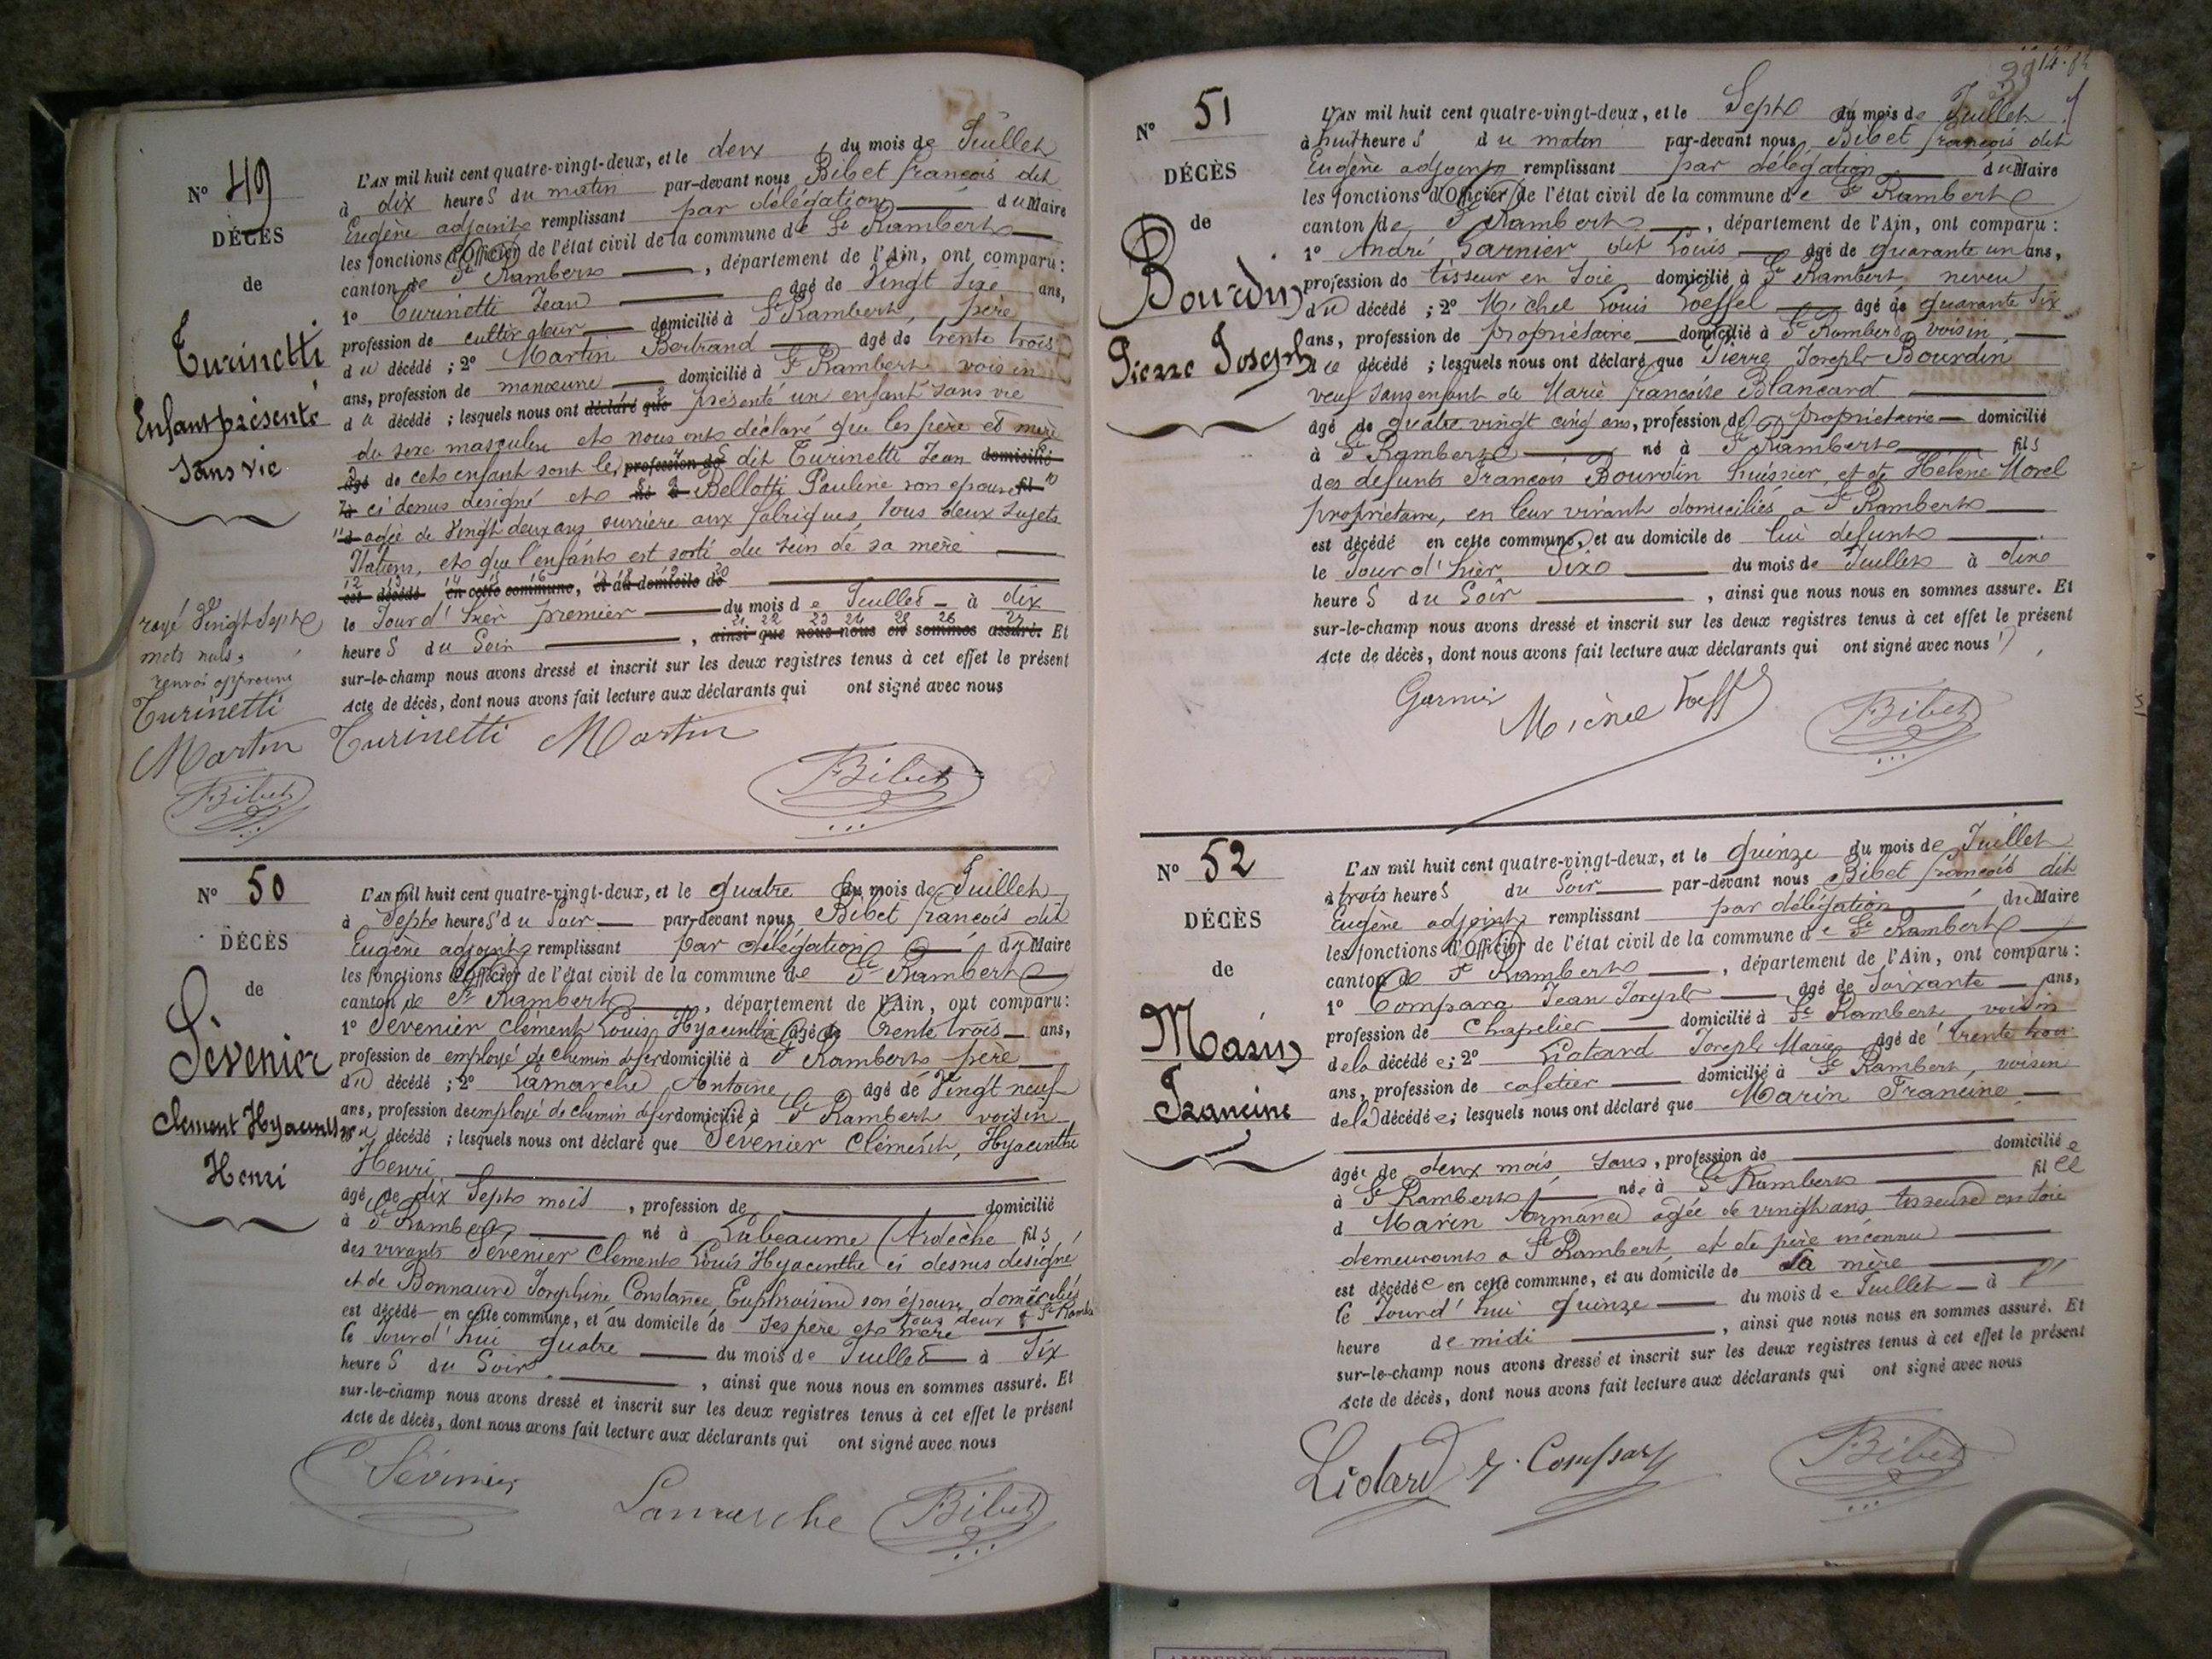 N° 49
DÉCÈS
de
Turinetti
Enfant présenté
sans vie
L'AN mil huit cent quatre-vingt-deux, et le deux du mois de Juillet
à dix heures du matin par-devant nous Bibet françois dit
Eugène adjoint remplissant par délégation du Maire
les fonctions d'Officier de l'état civil de la commune de St Rambert
canton de St Rambert, département de l'Ain, ont comparu :
1° Turinetti Jean âgé de Vingt Six ans,
profession de domicilié à St Rambert, père
du décédé ; 2° Martin Bertrand âgé de trente trois
ans, profession de manœuvre domicilié à St Rambert voisin
du décédé ; lesquels nous ont déclaré que présenté un enfant sans vie
du sexe masculin et nous ont déclaré que les père et mère
âgé de cet enfant sont les profession de dit Turinetti Jean domicilié
à ci dessus désigné et né à Bellotti Pauline son épouse fil
d agée de Vingt deux ans ouvrière aux fabriques, tous deux sujets
Italiens, et que l'enfant est sorti du sein de sa mère
12 13 14 15 16 17 18 19 20
est décédé en cette commune, et au domicile de
le Jour d'hier premier du mois de Juillet à dix
21 22 23 24 25 26 27
heures du Soir, ainsi que nous nous en sommes assuré. Et
sur-le-champ nous avons dressé et inscrit sur les deux registres tenus à cet effet le présent
Acte de décès, dont nous avons fait lecture aux déclarants qui ont signé avec nous
rayé Vingt Sept
mots nuls,
renvoi approuvé
Turinetti
Martin
Bibet
Turinetti Martin
Bibet
N° 50
DÉCÈS
de
Sévenier
Clément Hyacinthe
Henri
L'AN mil huit cent quatre-vingt-deux, et le quatre du mois de Juillet
à Sept heures du Soir par-devant nous Bibet françois dit
Eugène adjoint remplissant par délégation du Maire
les fonctions d'Officier de l'état civil de la commune de St Rambert
canton de St Rambert, département de l'Ain, ont comparu :
1° Sévenier Clément Louis Hyacinthe âgé de trente trois ans,
profession de employé de chemin de fer domicilié à St Rambert père
du décédé ; 2° Lamarche Antoine âgé de Vingt neuf
ans, profession de employé de chemin de fer domicilié à St Rambert voisin
du décédé ; lesquels nous ont déclaré que Sévenier Clément, Hyacinthe
Henri
âgé de dix Sept mois, profession de domicilié
à St Rambert né à Labeaume (Ardèche fils
des vivants Sévenier Clément Louis Hyacinthe ci dessus désigné
et de Bonnaure Joséphine Constance Euphroisine son épouse, domiciliés
tous deux à St Rambt
est décédé en cette commune, et au domicile de ses père et mère
le Jourd'hui quatre du mois de Juillet à Six
heures du Soir, ainsi que nous nous en sommes assuré. Et
sur-le-champ nous avons dressé et inscrit sur les deux registres tenus à cet effet le présent
Acte de décès, dont nous avons fait lecture aux déclarants qui ont signé avec nous
Sévenier
Lamarche Bibet
N° 51
DÉCÈS
de
Bourdin
Pierre Joseph
L'AN mil huit cent quatre-vingt-deux, et le Sept du mois de Juillet
à huit heures du matin par-devant nous Bibet françois dit
Eugène adjoint remplissant par délégation du Maire
les fonctions d'Officier de l'état civil de la commune de St Rambert
canton de St Rambert, département de l'Ain, ont comparu :
1° André Garnier dit Louis âgé de quarante un ans,
profession de tisseur en Soie domicilié à St Rambert neveu
du décédé ; 2° Michel Louis Loeffel âgé de quarante Six
ans, profession de propriétaire domicilié à St Rambert voisin,
du décédé ; lesquels nous ont déclaré que Pierre Joseph Bourdin
veuf sans enfant de Marie françoise Blancard
âgé de quatre vingt cinq ans, profession de propriétaire domicilié
à St Rambert né à St Rambert fils
des défunts François Bourdin huissier, et de Hélène Morel
propriétaire, en leur vivant domiciliés à St Rambert
est décédé en cette commune, et au domicile de lui défunt
le Jour d'hier Six du mois de Juillet à dix
heures du Soir, ainsi que nous nous en sommes assure. Et
sur-le-champ nous avons dressé et inscrit sur les deux registres tenus à cet effet le présent
Acte de décès, dont nous avons fait lecture aux déclarants qui ont signé avec nous
Garnier Michel Loeff
Bibet
N° 52
DÉCÈS
de
Marin
Francine
L'AN mil huit cent quatre-vingt-deux, et le quinze du mois de Juillet
à trois heures du Soir par-devant nous Bibet françois dit
Eugène adjoint remplissant par délégation du Maire
les fonctions d'Officier de l'état civil de la commune de St Rambert
canton de St Rambert, département de l'Ain, ont comparu :
1° Jean Joseph âgé de Soixante ans,
profession de Chapelier domicilié à St Rambert, voisin
de la décédée ; 2° Liotard Joseph Marie âgé de trente trois
ans, profession de cafetier domicilié à St Rambert, voisin
de la décédée ; lesquels nous ont déclaré que Marin Francine
âgée de deux mois sans, profession de domiciliée
à St Rambert née à St Rambert fille
d Marin agée de vingt ans tisseuse en soie
demeurant à St Rambert et de père inconnu
est décédée en cette commune, et au domicile de sa mère
le Jourd'hui quinze du mois de Juillet à
heure de midi, ainsi que nous nous en sommes assuré. Et
sur-le-champ nous avons dressé et inscrit sur les deux registres tenus à cet effet le présent
Acte de décès, dont nous avons fait lecture aux déclarants qui ont signé avec nous
Liotard
Bibet